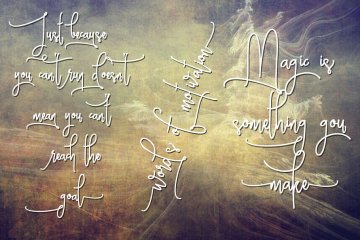 Just because
you can't run doesn't
mean you can't
reach the
goal
words of motivation
Magic is
something you
make